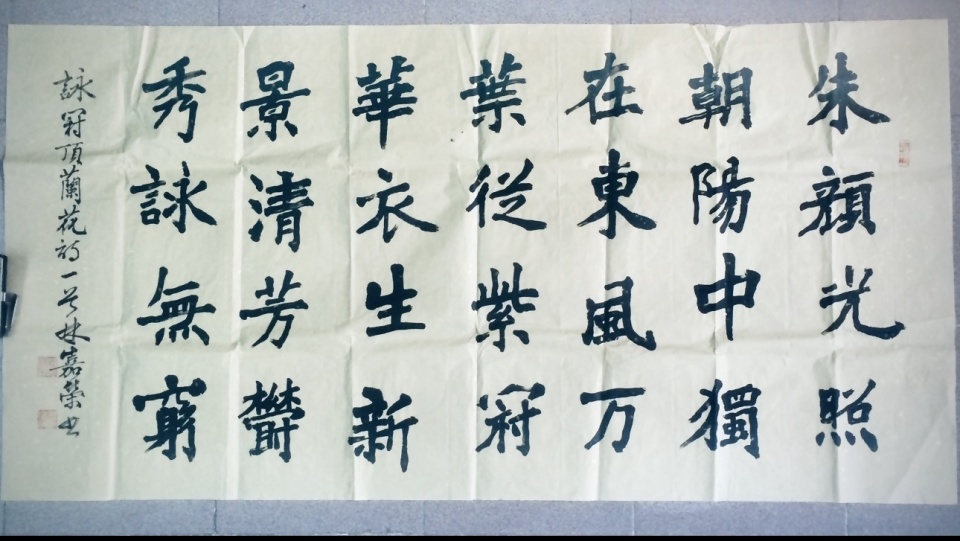 朱顏光照
朝陽中獨
在東風万
葉從紫冠
華衣生新
景清芳欝
秀詠無窮
詠冠頂蘭花詩一首林嘉榮书